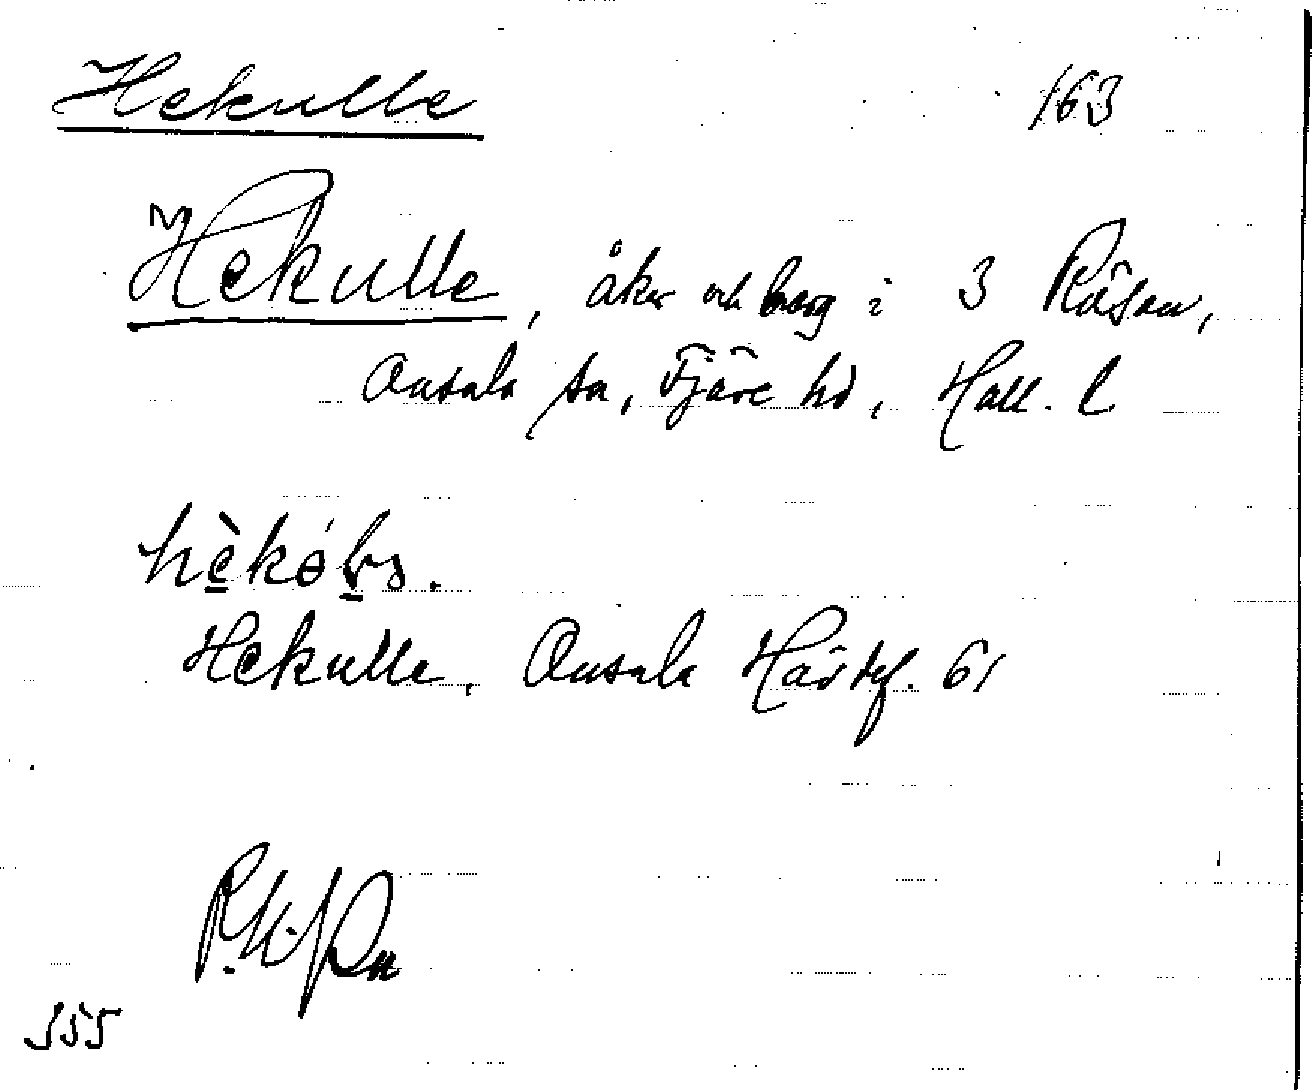 Hekulle 163
Hekulle, åker och berg i 3 Råsan,
Onsala sn, Fjäre hd, Hall. l
Hekulle, Onsala Härdsf. 61
355